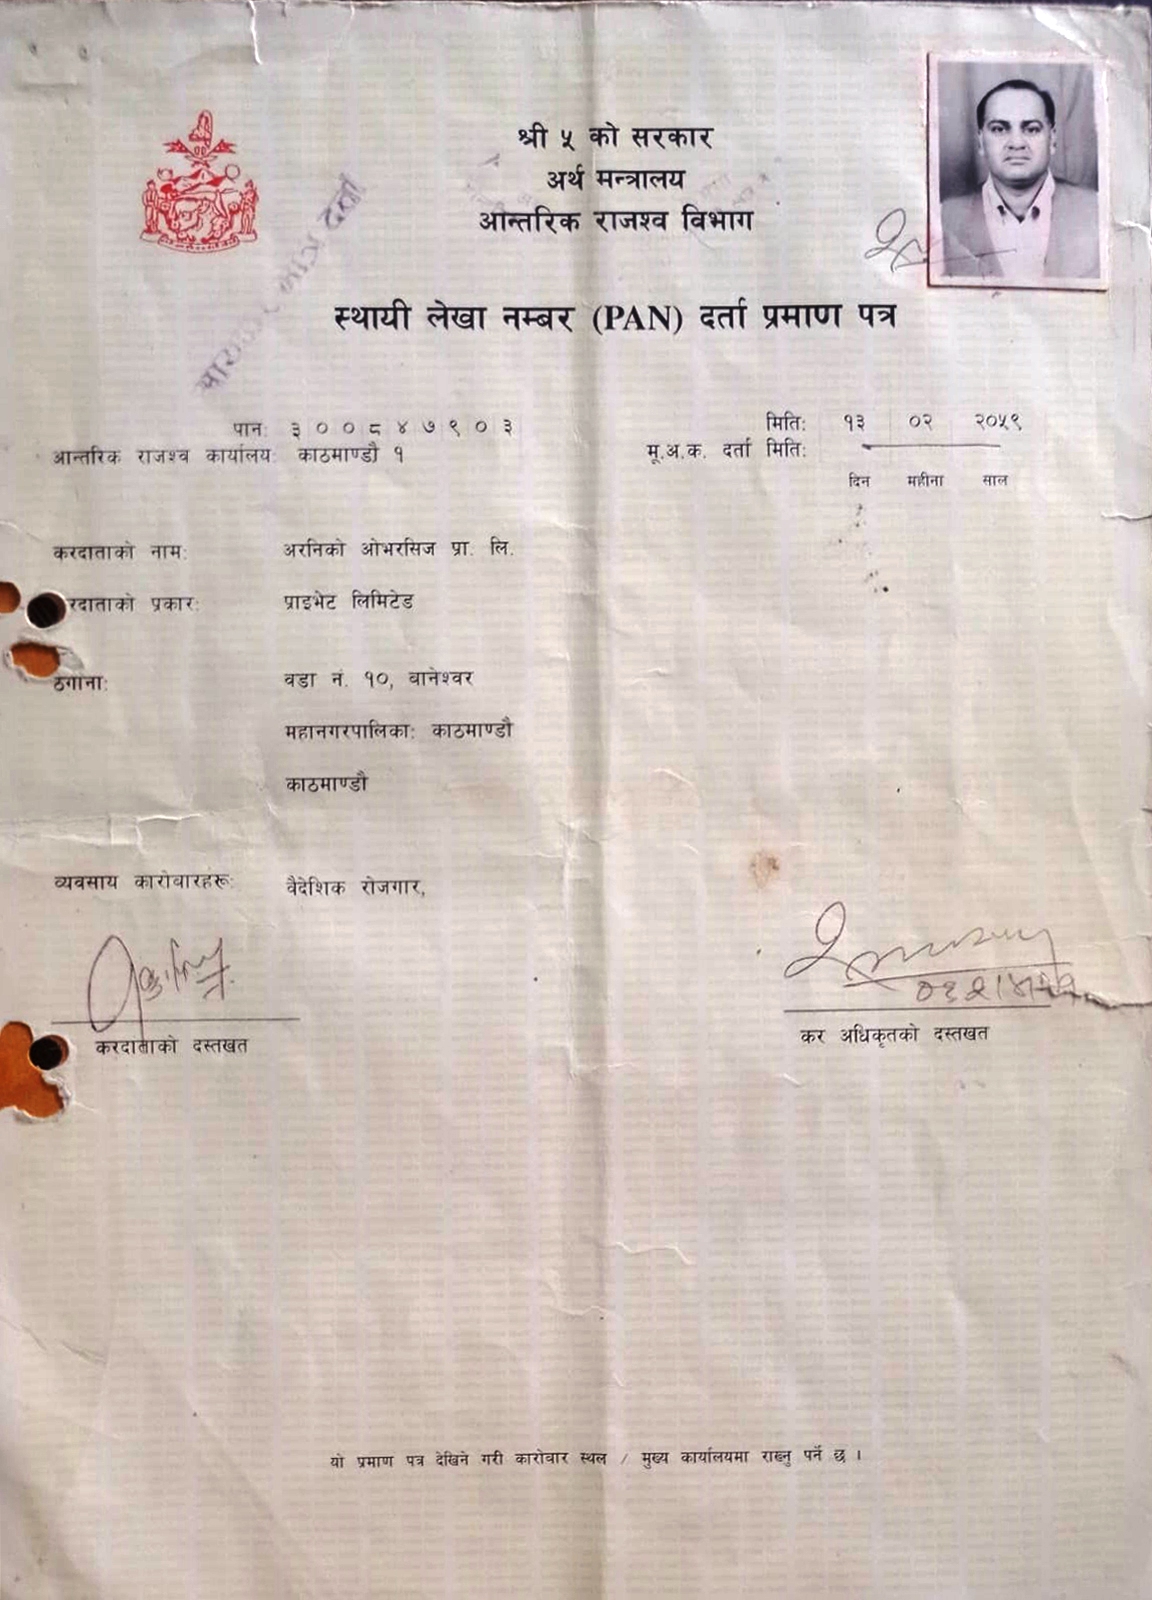 श्री ५ को सरकार
अर्थ मन्त्रालय
आन्तरिक राजश्व विभाग
स्थायी लेखा नम्बर (PAN) दर्ता प्रमाण पत्र
दर्ता
पान: ३ ० ० ८ ४ ७ ९ ० ३
मिति: १३ ०२ २०५९
आन्तरिक राजश्व कार्यालय: काठमाण्डौ १
मू.अ.क. दर्ता मिति:
दिन महीना साल
करदाताको नाम: अरनिको ओभरसिज प्रा. लि.
रदाताको प्रकार: प्राइभेट लिमिटेड
ठेगाना: वडा नं. १०, बानेश्वर
महानगरपालिका: काठमाण्डौ
काठमाण्डौ
व्यवसाय कारोबारहरू: वैदेशिक रोजगार,
करदाताको दस्तखत
कर अधिकृतको दस्तखत
यो प्रमाण पत्र देखिने गरी कारोबार स्थल / मुख्य कार्यालयमा राख्नु पर्ने छ ।